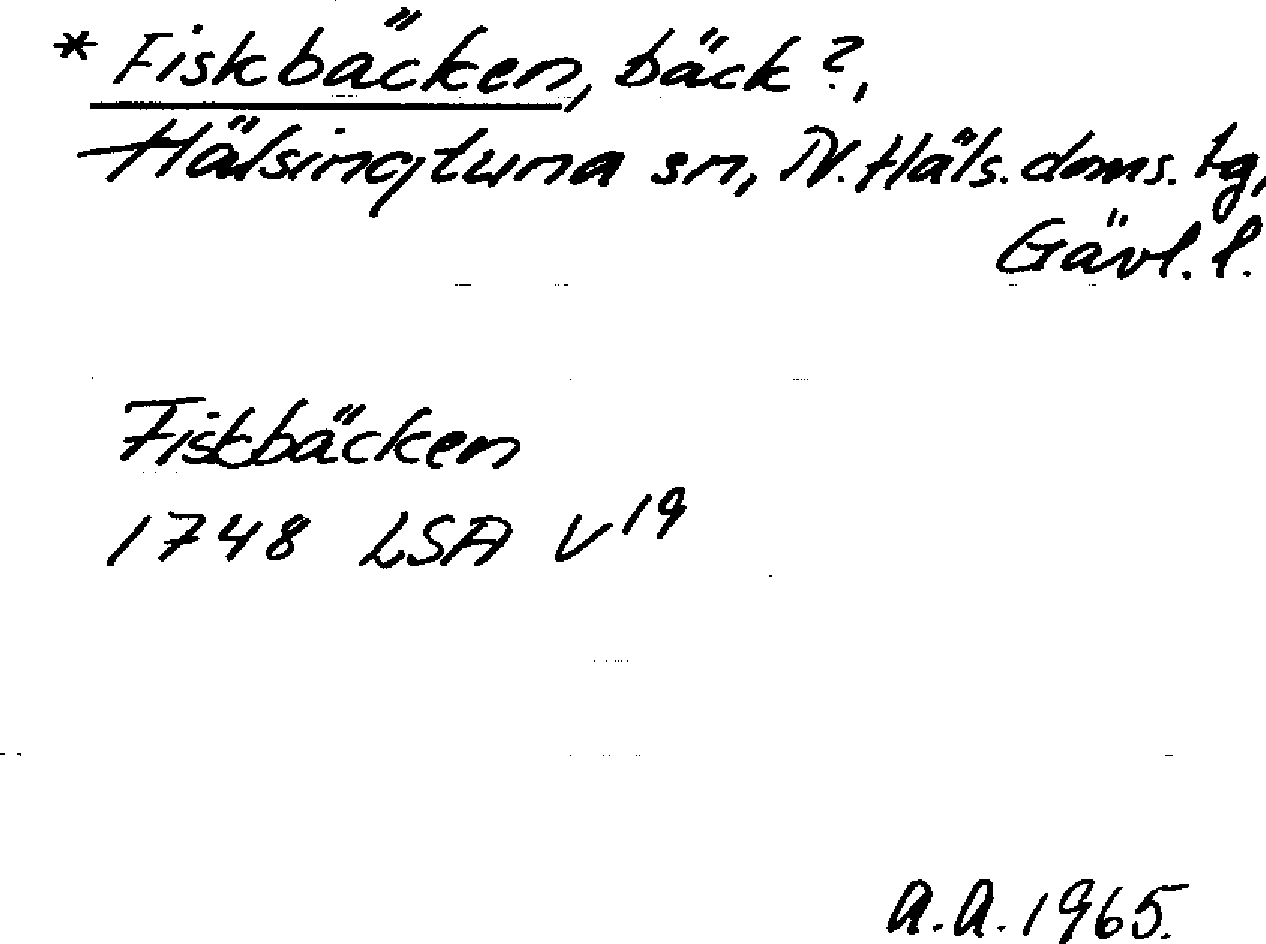 * Fiskbäcken, bäck?,
Hälsingtuna sn, N. Häls. doms. tg,
Gävl. l.
Fiskbäcken
1748 LSA V19
A.A. 1965.